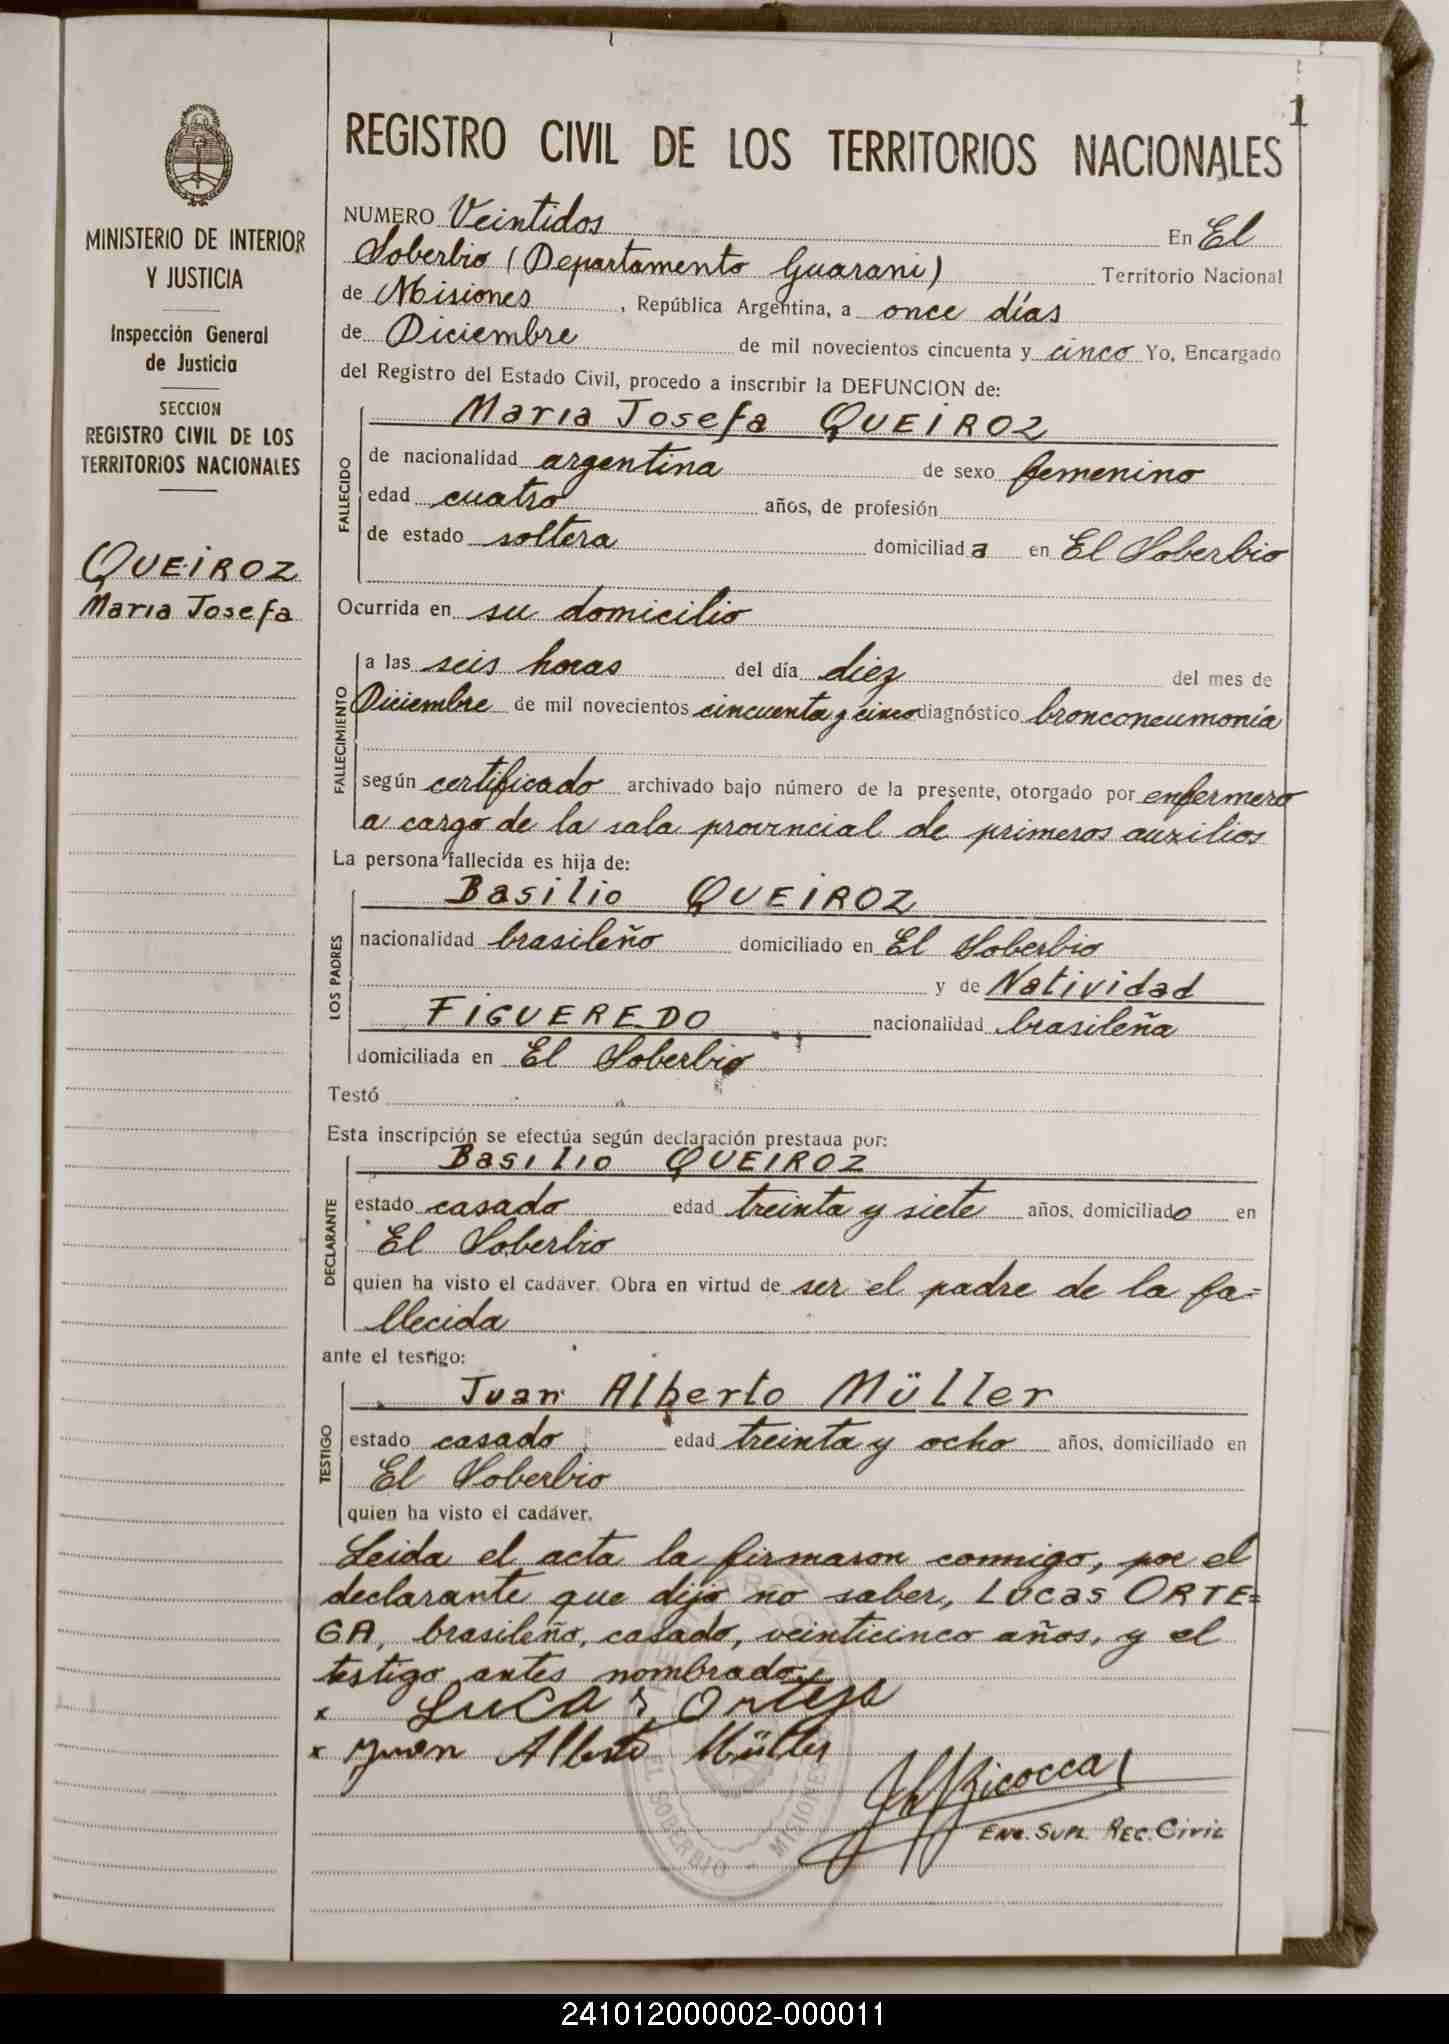 1
REGISTRO CIVIL DE LOS TERRITORIOS NACIONALES
MINISTERIO DE INTERIOR
Y JUSTICIA
Inspección General
de Justicia
SECCION
REGISTRO CIVIL DE LOS
TERRITORIOS NACIONALES
QUEIROZ
Maria Josefa
NUMERO Veintidos En El
Soberbio (Departamento Guarani) Territorio Nacional
de Misiones, República Argentina, a once días
de Diciembre de mil novecientos cincuenta y cinco Yo, Encargado
del Registro del Estado Civil, procedo a inscribir la DEFUNCION de:
Maria Josefa QUEIROZ
FALLECIDO
de nacionalidad argentina de sexo femenino
edad cuatro años, de profesión
de estado soltera domiciliada en El Soberbio
Ocurrida en su domicilio
FALLECIMIENTO
a las seis horas del día diez del mes de
Diciembre de mil novecientos cincuenta y cinco diagnóstico bronconeumonía
según certificado archivado bajo número de la presente, otorgado por enfermero
a cargo de la sala provincial de primeros auxilios
La persona fallecida es hija de:
LOS PADRES
Basilio QUEIROZ
nacionalidad brasileño domiciliado en El Soberbio
y de Natividad
FIGUEREDO nacionalidad brasileña
domiciliada en El Soberbio
Testó
Esta inscripción se efectúa según declaración prestada por:
DECLARANTE
Basilio QUEIROZ
estado casado edad treinta y siete años, domiciliado en
El Soberbio
quien ha visto el cadáver. Obra en virtud de ser el padre de la fa=
llecida
ante el testigo:
TESTIGO
Juan Alberto Müller
estado casado edad treinta y ocho años, domiciliado en
El Soberbio
quien ha visto el cadáver.
Leida el acta la firmaron conmigo, por el
declarante que dijo no saber, Lucas ORTE=
GA, brasileño, casado, veinticinco años, y el
testigo antes nombrado.
x Lucas Ortega
x Juan Alberto Müller
Bicocca
ENC. SUPL. REG. Civil
EL SOBERBIO - MISIONES
241012000002-000011